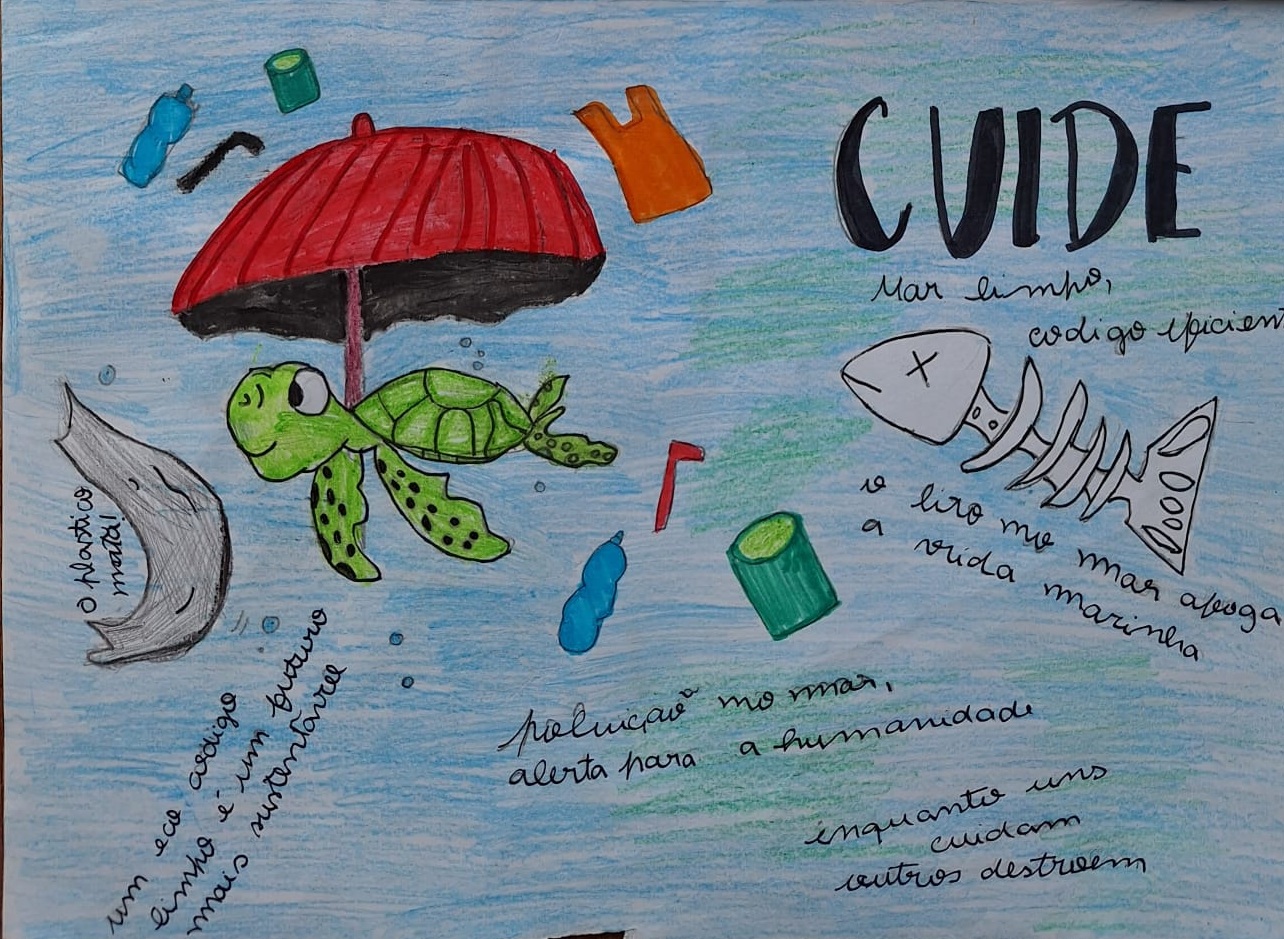 CUIDE
Mar limpo,
codigo eficient
o lixo no mar afoga
a vida marinha
O plastico
mata!
um eco codigo
limpo é um futuro
mais sustentável
poluição no mar,
alerta para a humanidade
enquanto uns
cuidam
outros destroem